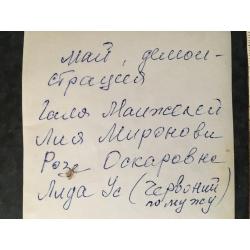 май, демон-
страция
Галя Манжелей
Лия Миронovна
Роза Оскаровна
Лида Ус (Червоний
по мужу)